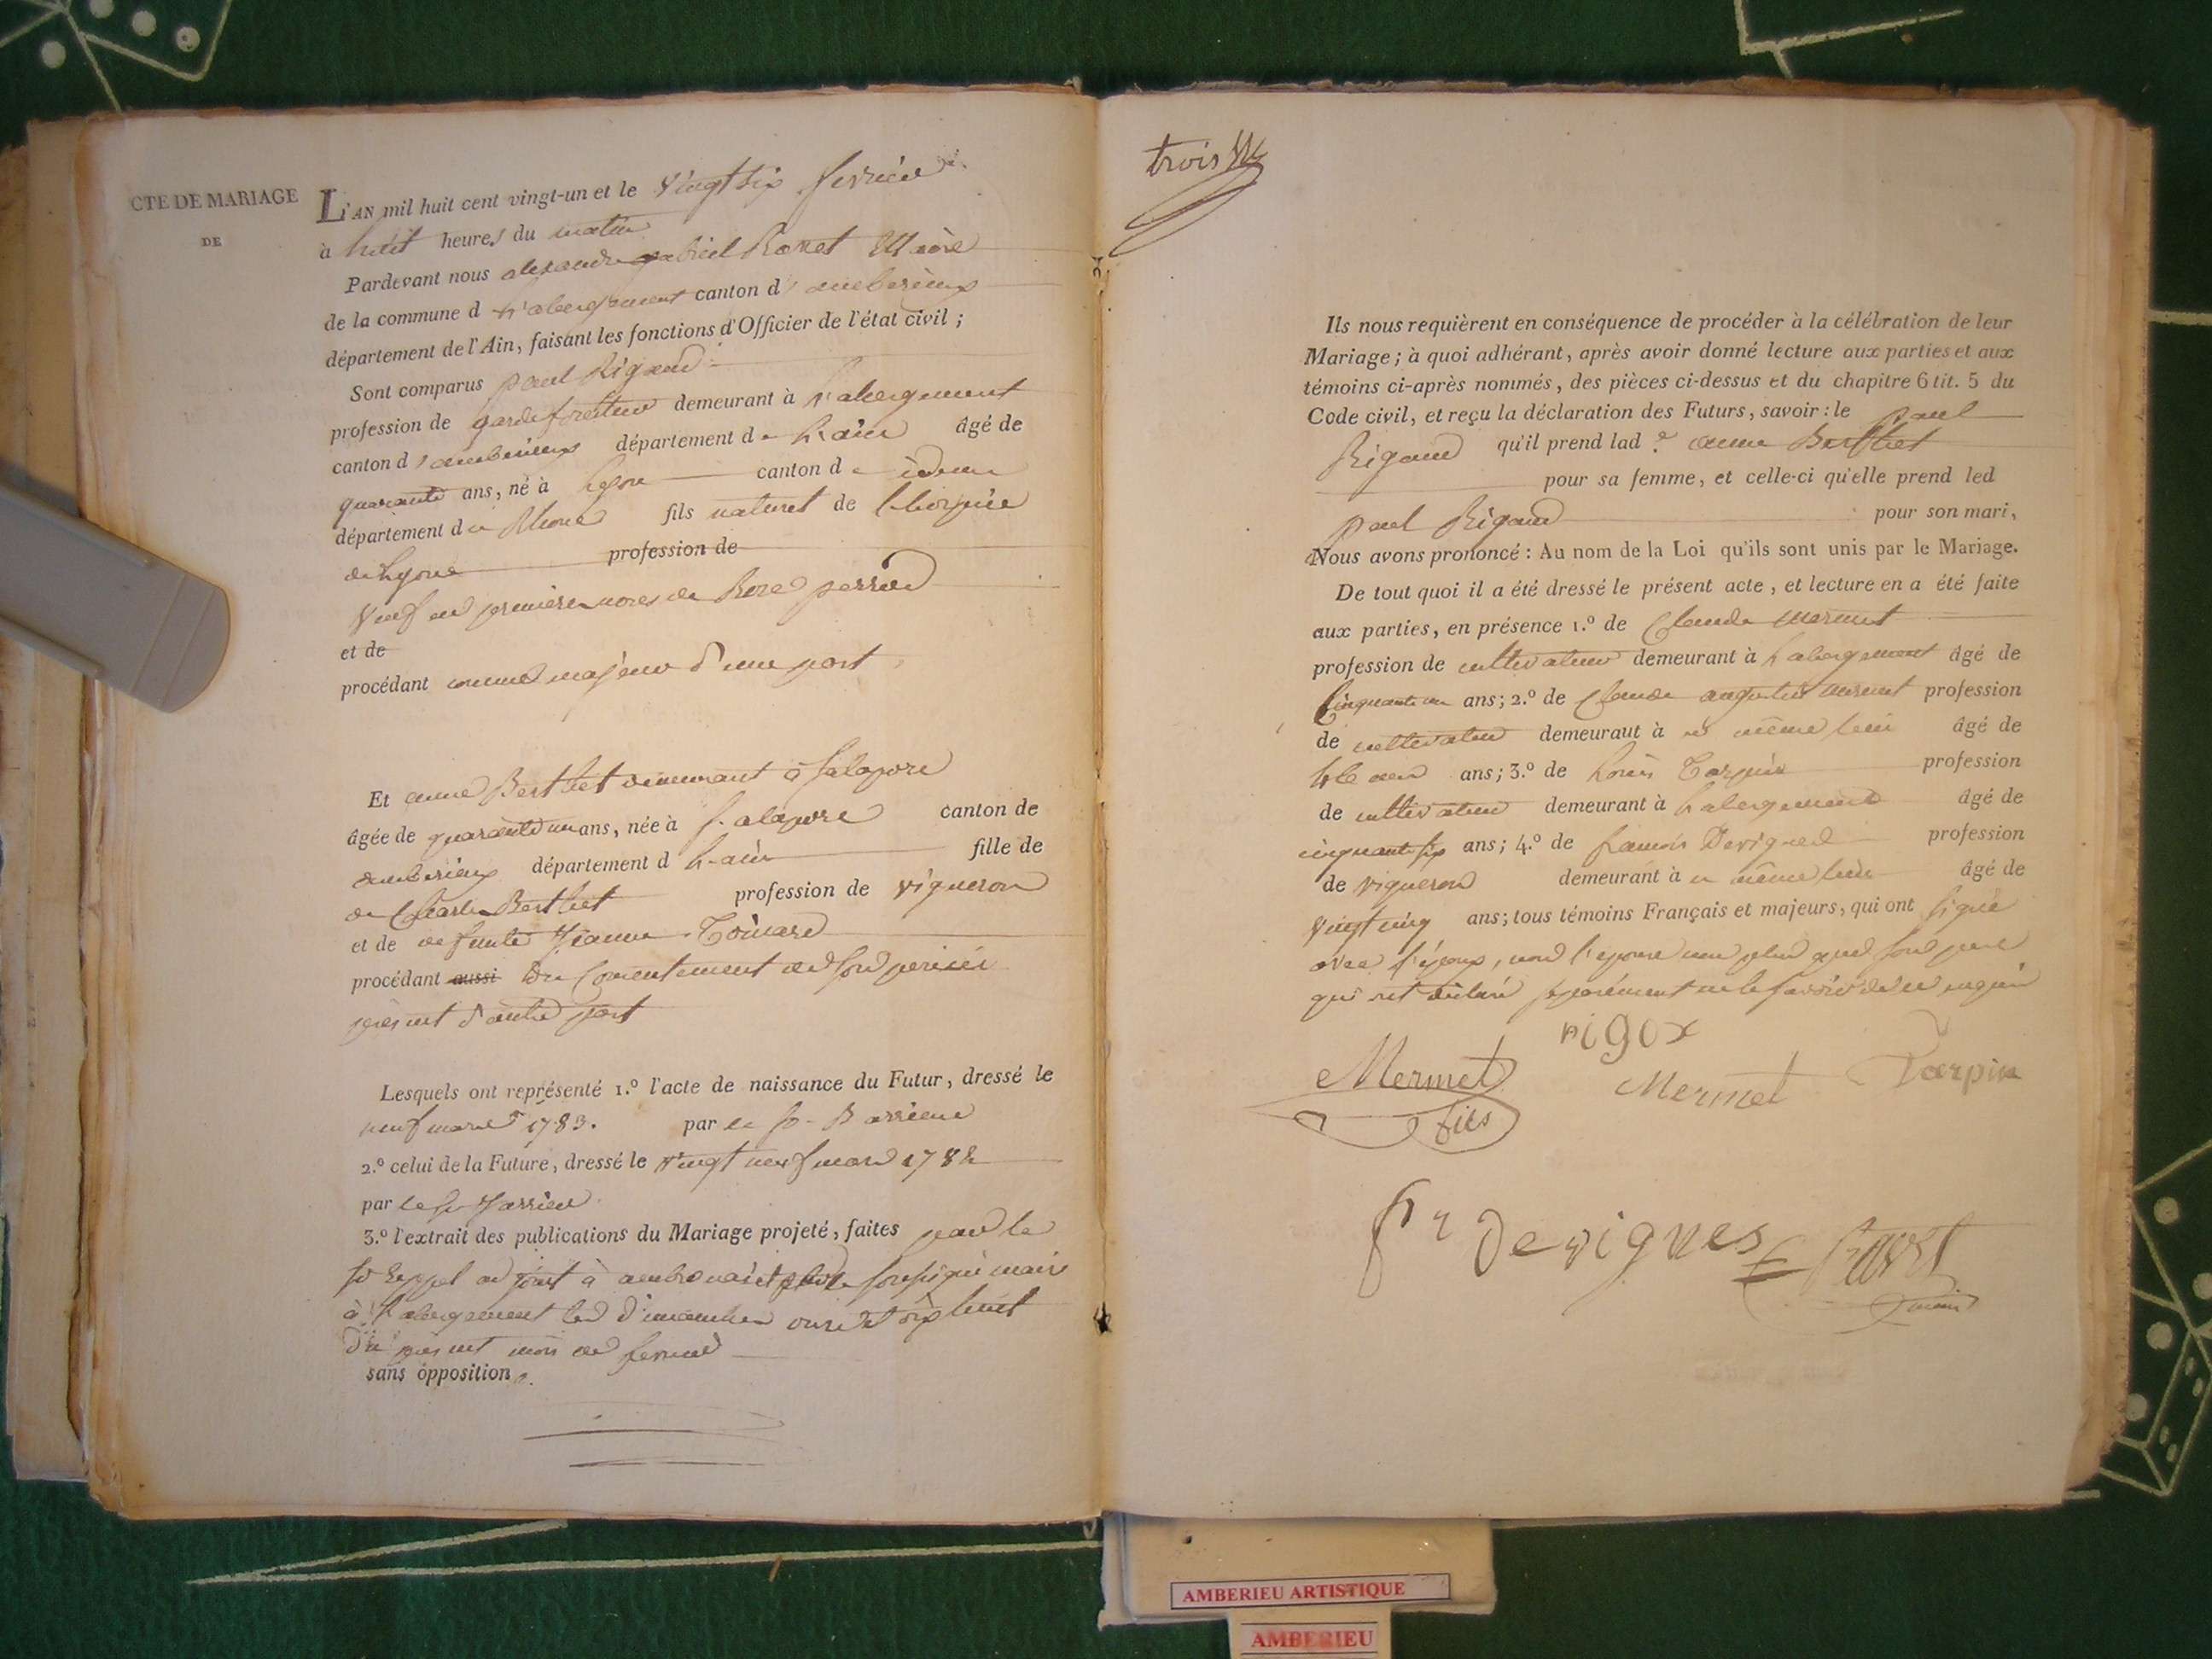 CTE DE MARIAGE
DE
L'AN mil huit cent vingt-un et le vingt six fevrier
à huit heures du matin
Pardevant nous alexandre gabriel Ravet Maire
de la commune d L'abergement canton d'ambérieux
département de l'Ain, faisant les fonctions d'Officier de l'état civil ;
Sont comparus paul Rigaud
profession de garde forestier demeurant à L'abergement
canton d'ambérieux département de L'ain âgé de
quarante ans, né à Lyon canton de idem
département du Rhone fils naturel de l'hospice
de Lyon profession de
veuf en premiere noces de Roze perrin
et de
procédant comme majeur d'une part
Et anne Berthet demeurant à
âgée de quarante un ans, née à canton de
ambérieux département d L'ain fille de
de Charles Berthet profession de vigneron
et de defunte Jeanne
procédant aussi du consentement de son père ici
présent d'autre part
Lesquels ont représenté 1.º l'acte de naissance du Futur, dressé le
neuf mars 1783. par le Sr
2.º celui de la Future, dressé le vingt neuf mars 178
par le Sr
3.º l'extrait des publications du Mariage projeté, faites par le
Sr adjoint à et par le soussigné maire
à L'abergement les dimanches onze et dix huit
du présent mois de fevrier
sans opposition.
trois
Ils nous requièrent en conséquence de procéder à la célébration de leur
Mariage ; à quoi adhérant, après avoir donné lecture aux parties et aux
témoins ci-après nommés, des pièces ci-dessus et du chapitre 6 tit. 5 du
Code civil, et reçu la déclaration des Futurs, savoir : le Paul
Rigaud qu'il prend lad.e anne Berthet
pour sa femme, et celle-ci qu'elle prend led
paul Rigaud pour son mari,
Nous avons prononcé : Au nom de la Loi qu'ils sont unis par le Mariage.
De tout quoi il a été dressé le présent acte, et lecture en a été faite
aux parties, en présence 1.º de Claude mermet
profession de cultivateur demeurant à L'abergement âgé de
Cinquante un ans ; 2.º de Claude augustin mermet profession
de cultivateur demeuraut à même lieu âgé de
ans ; 3.º de Louis Tarpin profession
de cultivateur demeurant à L'abergement âgé de
cinquante six ans ; 4.º de francois Devignes profession
de vigneron demeurant à même lieu âgé de
vingt cinq ans ; tous témoins Français et majeurs, qui ont signé
avec l'époux, non l'epouse non plus que son pere
qui ont déclaré séparément ne le savoir de ce enquis
rigox
Mermet fils
Mermet
Tarpin
fr devignes
Ravet
maire
AMBERIEU ARTISTIQUE
AMBERIEU